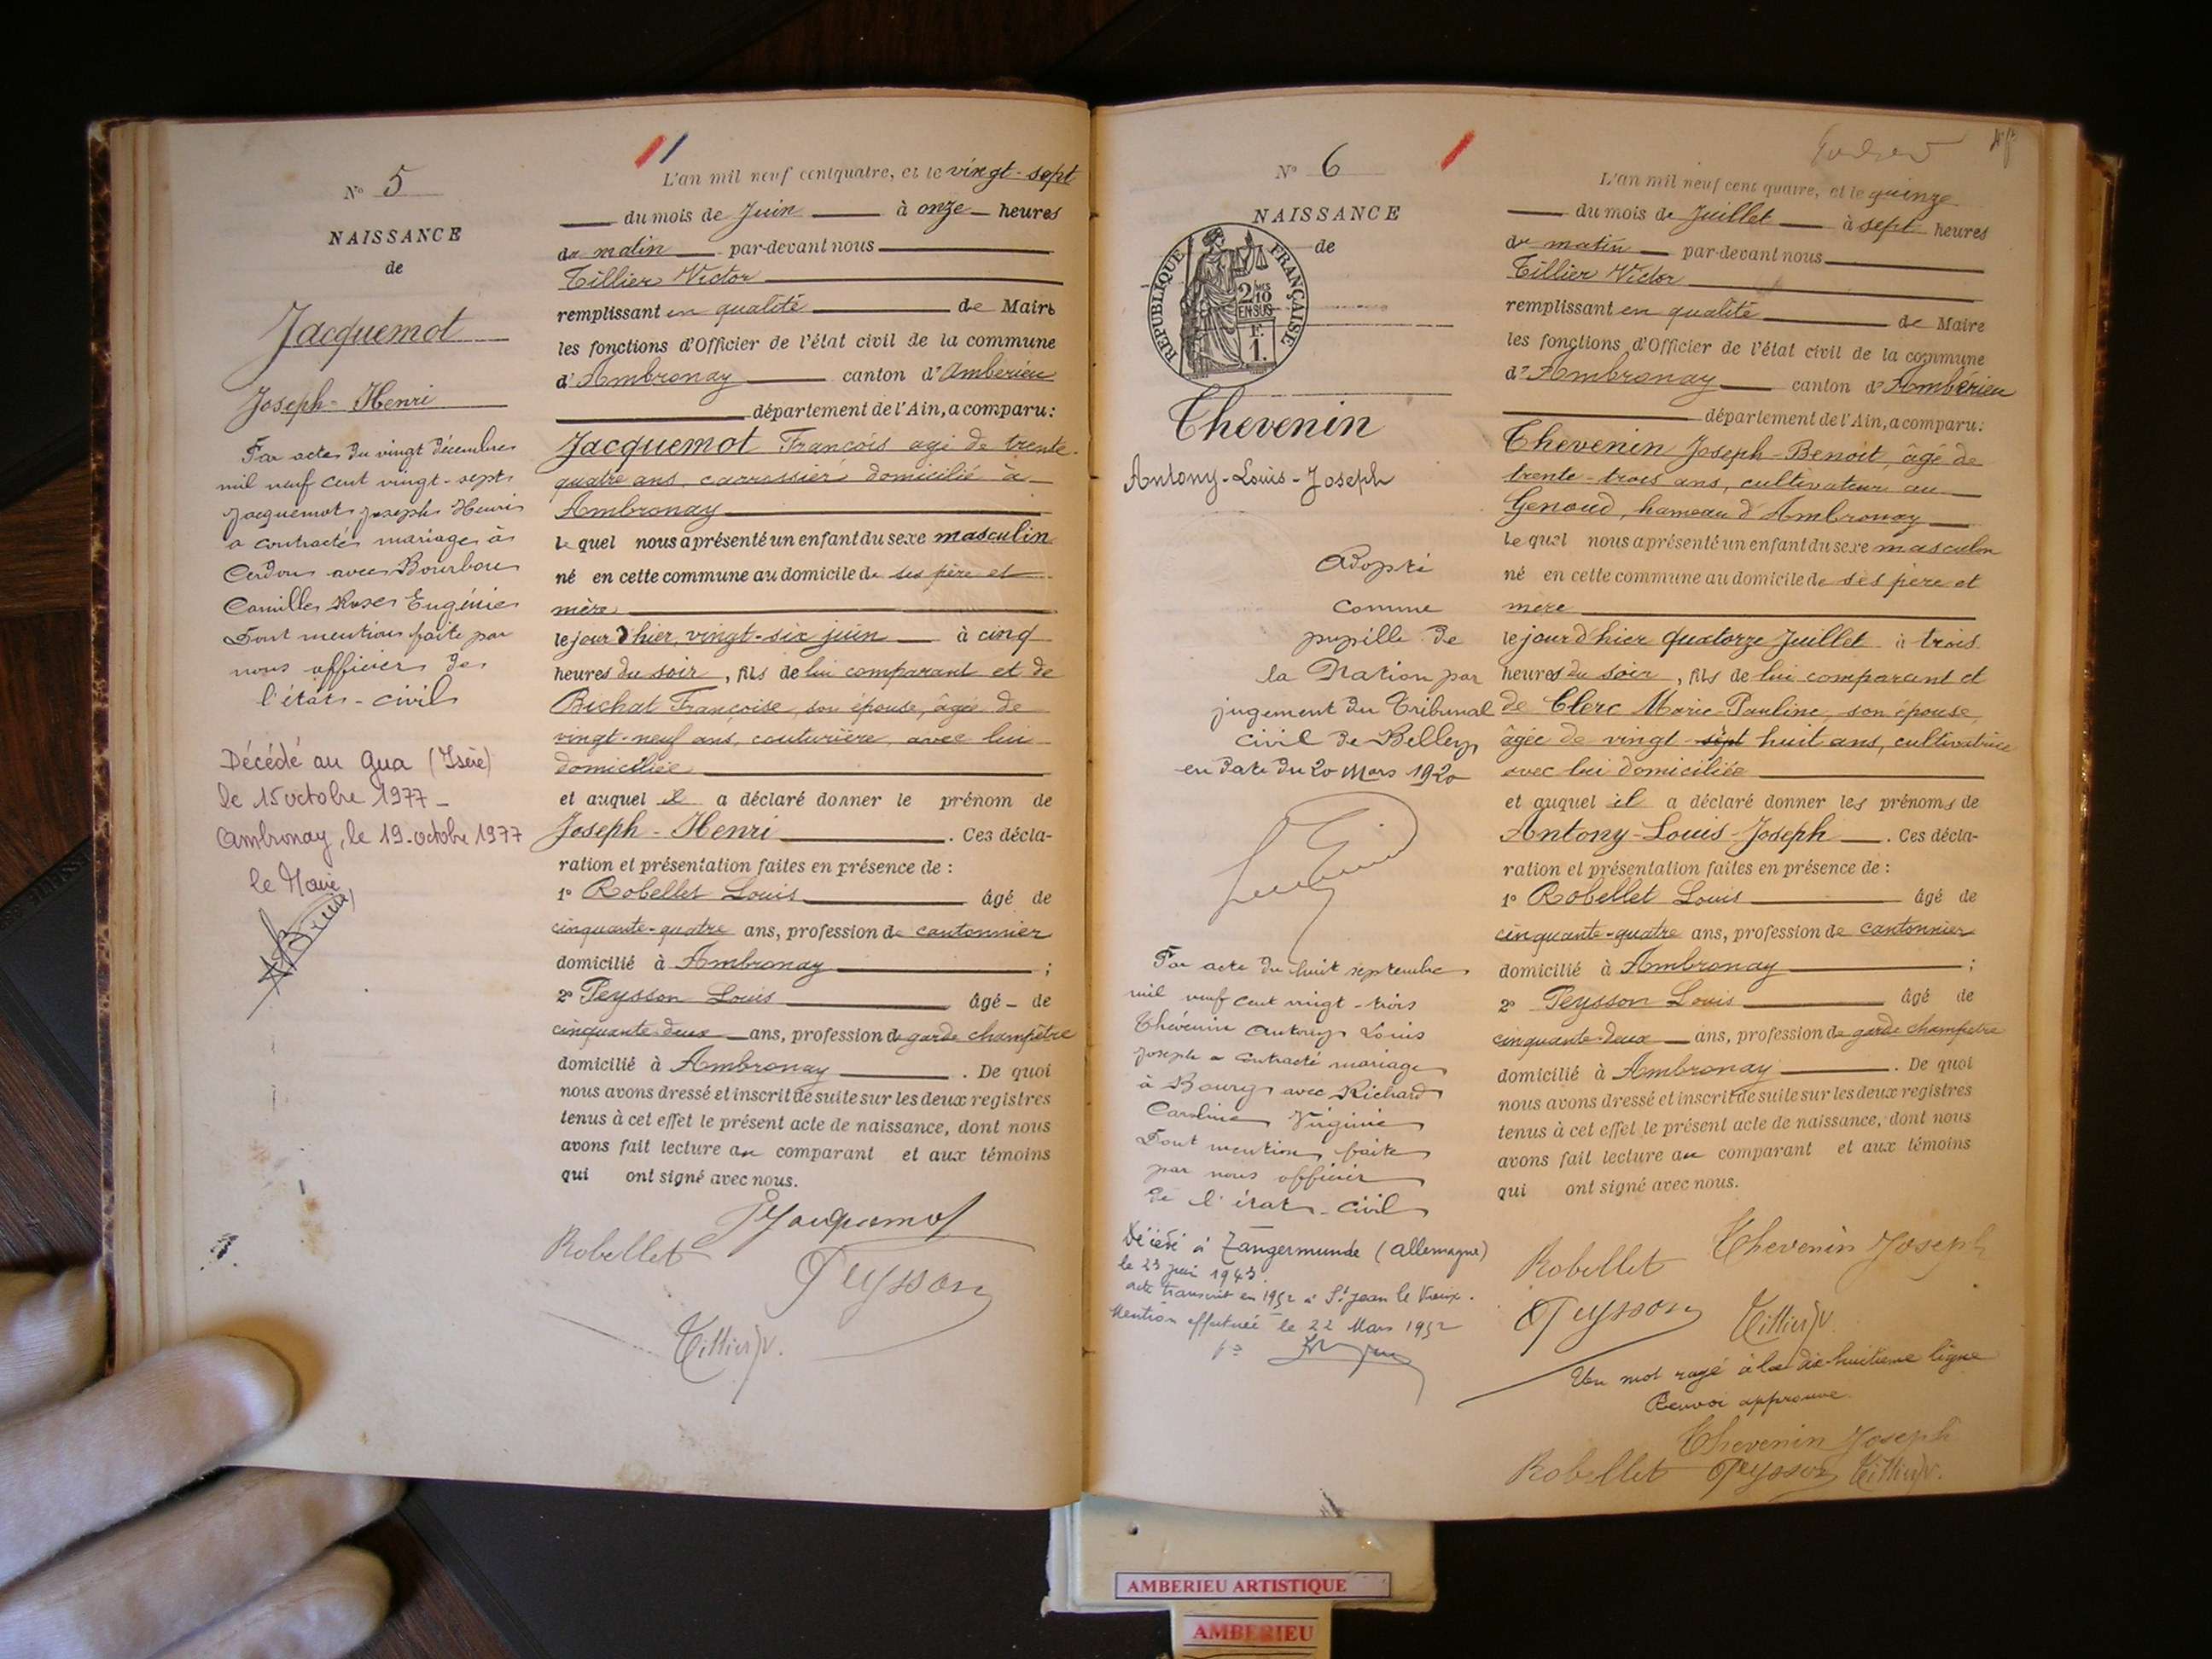 N° 5
NAISSANCE
de
Jacquemot
Joseph-Henri
Par acte du vingt décembre
mil neuf cent vingt-sept
Jacquemot Joseph Henri
a contracté mariage à
Cerdon avec Bourbon
Camille Rose Eugénie
Dont mention faite par
nous officier de
l'état-civil
Décédé au Gua (Isère)
le 15 octobre 1977 -
Ambronay, le 19 octobre 1977
le Maire
L'an mil neuf cent quatre, et le vingt-sept
du mois de Juin à onze heures
du matin par-devant nous
Tillier Victor
remplissant en qualité de Maire
les fonctions d'Officier de l'état civil de la commune
d'Ambronay canton d'Ambérieu
département de l'Ain, a comparu:
Jacquemot François agé de trente-
quatre ans, carrossier domicilié à
Ambronay
lequel nous a présenté un enfant du sexe masculin
né en cette commune au domicile de ses père et
mère
le jour d'hier, vingt-six juin à cinq
heures du soir, fils de lui comparant et de
Bichat Françoise, son épouse, âgée de
vingt-neuf ans, couturière, avec lui
domiciliée
et auquel il a déclaré donner le prénom de
Joseph-Henri. Ces décla-
ration et présentation faites en présence de :
1° Robellet Louis âgé de
cinquante-quatre ans, profession de cantonnier
domicilié à Ambronay ;
2° Peysson Louis âgé de
cinquante-deux ans, profession de garde champêtre
domicilié à Ambronay. De quoi
nous avons dressé et inscrit de suite sur les deux registres
tenus à cet effet le présent acte de naissance, dont nous
avons fait lecture au comparant et aux témoins
qui ont signé avec nous.
Jacquemot
Robellet
Peysson
Tillier V.
N° 6
NAISSANCE
de
REPUBLIQUE FRANÇAISE
2/10 EN SUS
F.
1.
Thevenin
Antony-Louis-Joseph
Adopté
comme
pupille de
la Nation par
jugement du Tribunal
civil de Belley
en date du 20 Mars 1920
Par acte du huit septembre
mil neuf cent vingt-trois
Thévenin Antony Louis
Joseph a contracté mariage
à Bourg avec Richard
Caroline Virginie
Dont mention faite
par nous officier
de l'état-civil
Décédé à Tangermunde (Allemagne)
le 23 juin 1943.
acte transcrit en 1952 à St Jean le Vieux.
Mention effectuée le 22 Mars 1952
L'an mil neuf cent quatre, et le quinze
du mois de Juillet à sept heures
du matin par-devant nous
Tillier Victor
remplissant en qualité de Maire
les fonctions d'Officier de l'état civil de la commune
d'Ambronay canton d'Ambérieu
département de l'Ain, a comparu:
Thevenin Joseph-Benoit, âgé de
trente-trois ans, cultivateur au
Genoud, hameau d'Ambronay
lequel nous a présenté un enfant du sexe masculin
né en cette commune au domicile de ses père et
mère
le jour d'hier quatorze Juillet à trois
heures du soir, fils de lui comparant et
de Clerc Marie-Pauline, son épouse,
âgée de vingt sept huit ans, cultivatrice
avec lui domiciliée
et auquel il a déclaré donner les prénoms de
Antony-Louis-Joseph. Ces décla-
ration et présentation faites en présence de :
1° Robellet Louis âgé de
cinquante-quatre ans, profession de cantonnier
domicilié à Ambronay ;
2° Peysson Louis âgé de
cinquante-deux ans, profession de garde champetre
domicilié à Ambronay. De quoi
nous avons dressé et inscrit de suite sur les deux registres
tenus à cet effet le présent acte de naissance, dont nous
avons fait lecture au comparant et aux témoins
qui ont signé avec nous.
Robellet Thevenin Joseph
Peysson Tillier V.
Un mot rayé à la dix-huitième ligne
Renvoi approuvé
Thevenin Joseph
Robellet Peysson Tillier V.
AMBERIEU ARTISTIQUE
AMBERIEU